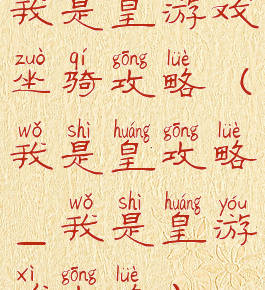 我是皇游戏
zuò qí gōng lüè
坐骑攻略（
wǒ shì huáng gōng lüè
我是皇攻略
wǒ shì huáng yóu
_我是皇游
xì gōng lüè